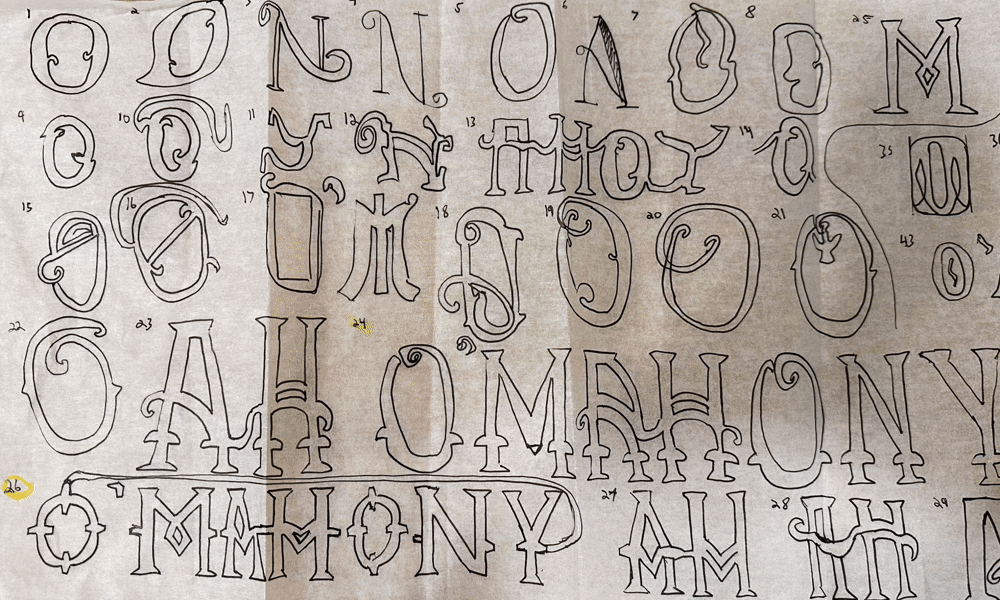 1 O 2 O 3 N 4 N 5 O 6 N 7 O 8 O 25 M
9 O 10 O 11 Y 12 N 13 AHOY 14 O 35 O
15 O 16 O 17 O' M 18 N 19 O 20 O 21 O 43 O'
22 O 23 AH 24 O'MAHONY
26 O'MAHONY 27 AH 28 AH 29